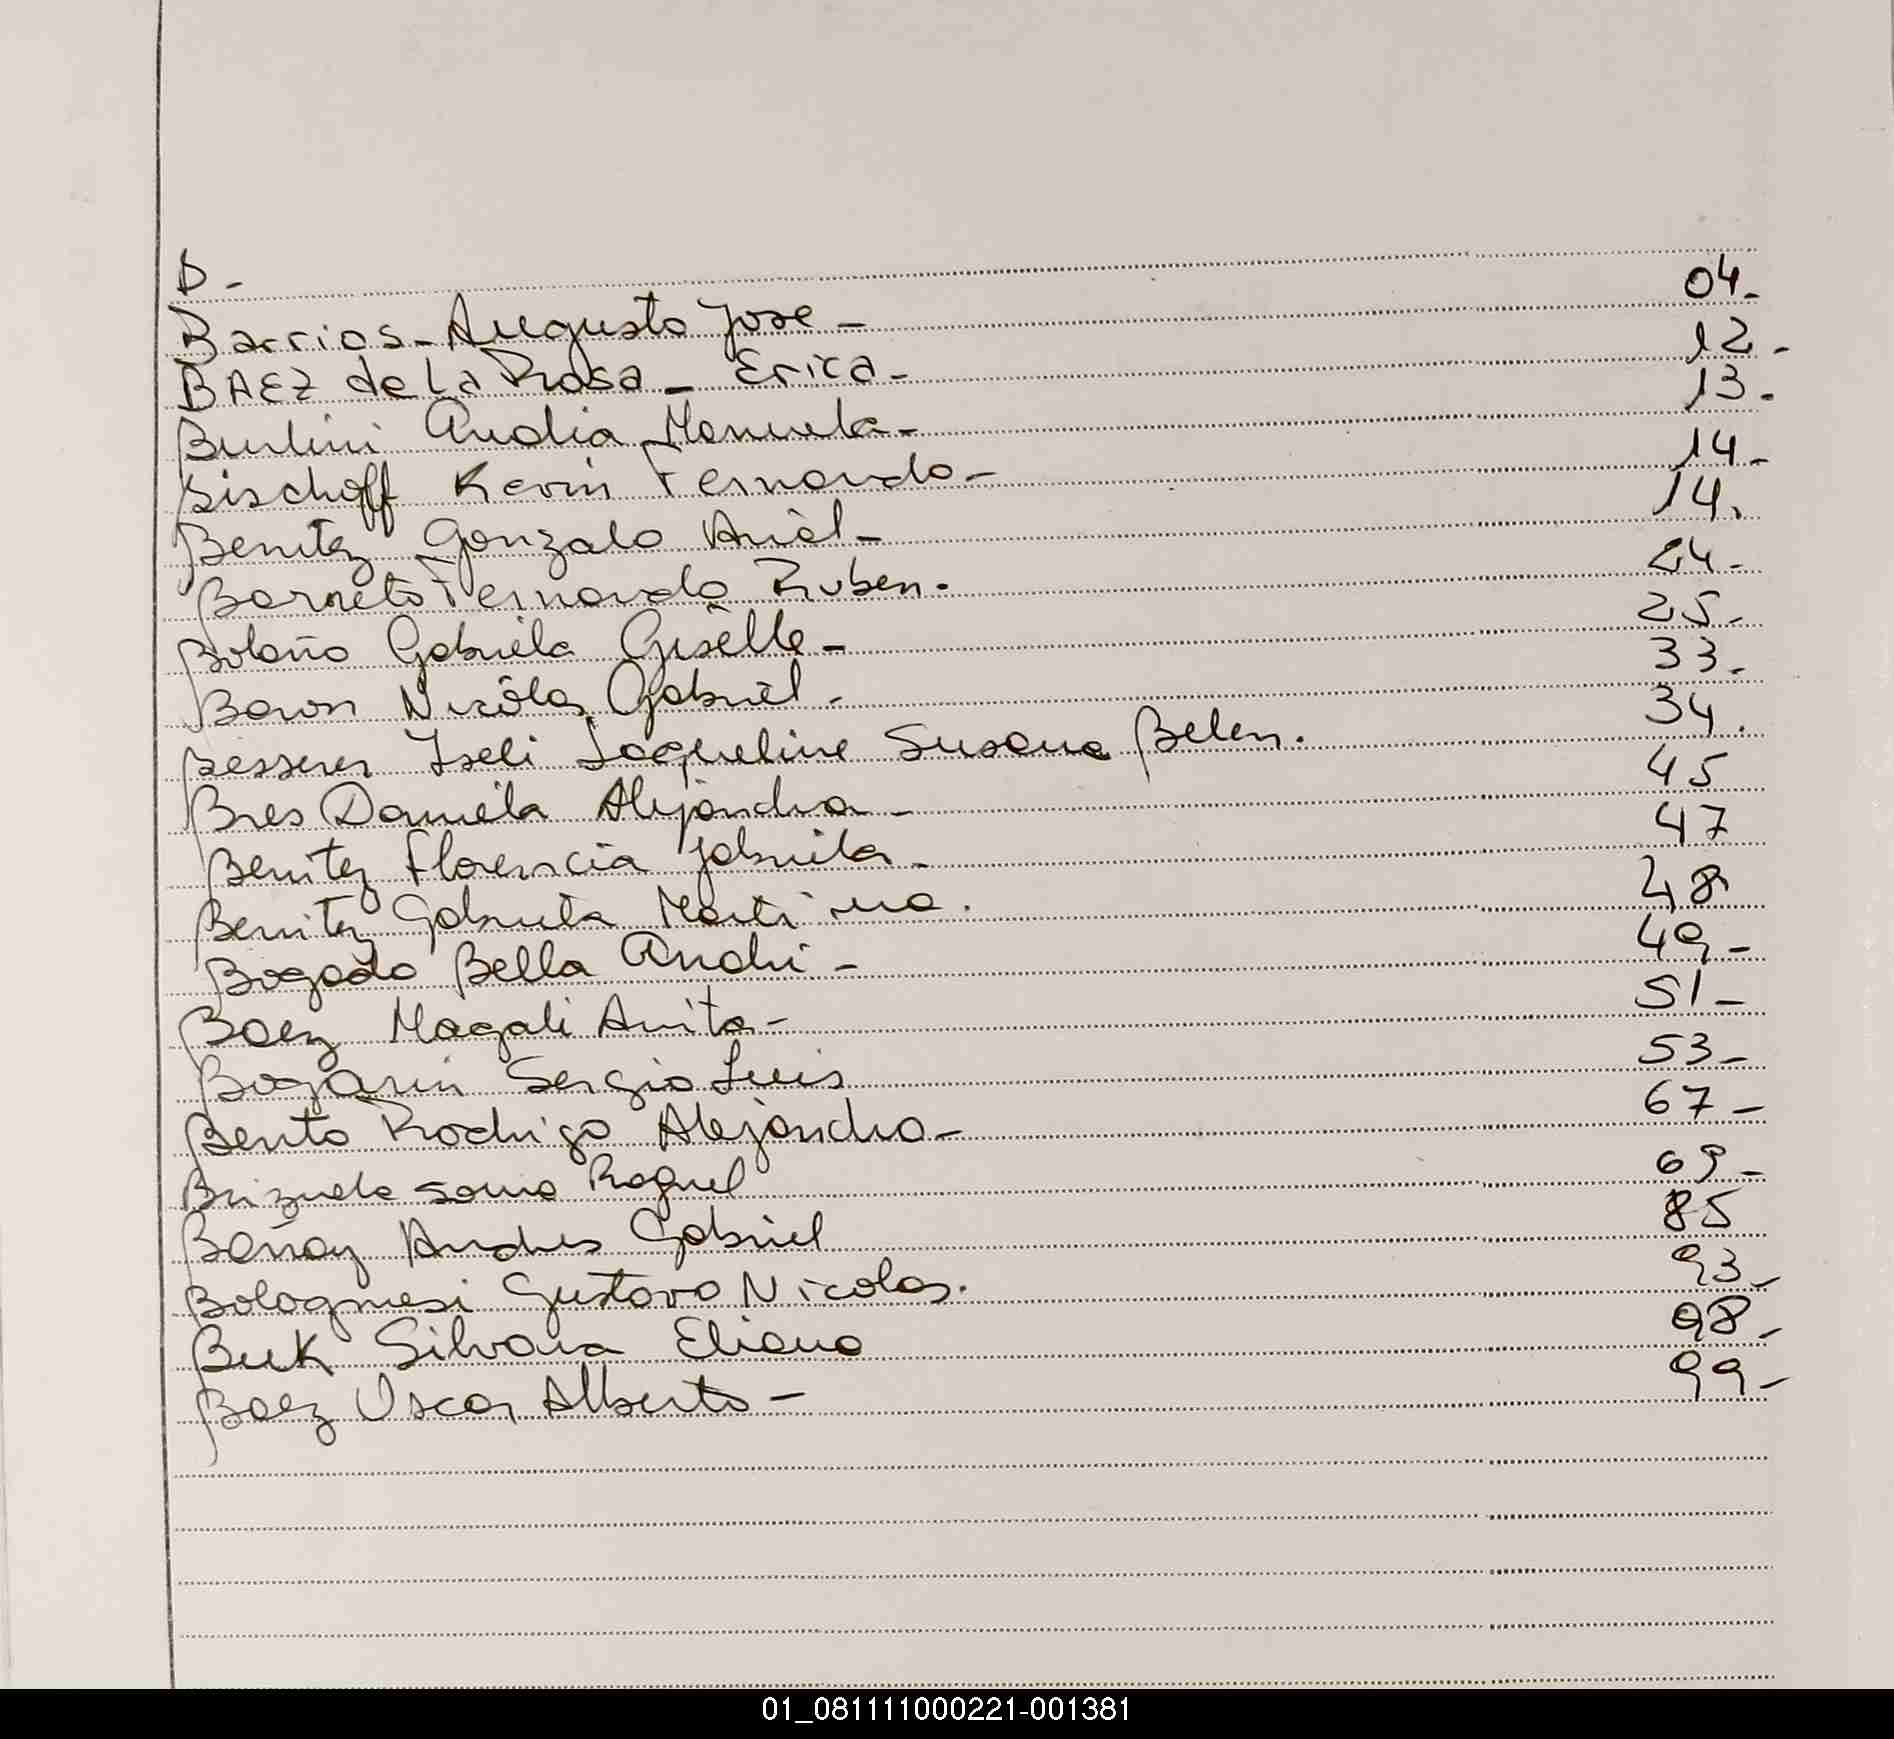 B-
Barrios - Augusto Jose - 04-
BAEZ de La Rosa - Erica - 12-
Burlini Analia Manuela - 13-
Bischoff Kevin Fernando - 14-
Benitez Gonzalo Ariel - 14.
Barneto Fernando Ruben. 24-
Bolaño Gabriela Giselle - 25-
Baron Nicolas Gabriel - 33-
Besserer Iseli Jaqueline Susana Belen. 34.
Bres Daniela Alejandra - 45
Benitez Florencia Gabriela - 47
Benitez Gabriela Martina. 48
Bogado Bella Andri - 49-
Baez Magali Anita - 51-
Bogarin Sergio Luis 53-
Bento Rodrigo Alejandro - 67-
Brizuela Sonia Raquel 69-
Bañay Andres Gabriel 85
Bolognesi Gustavo Nicolas. 93-
Buk Silvana Eliana 98-
Baez Oscar Alberto - 99-
01_081111000221-001381